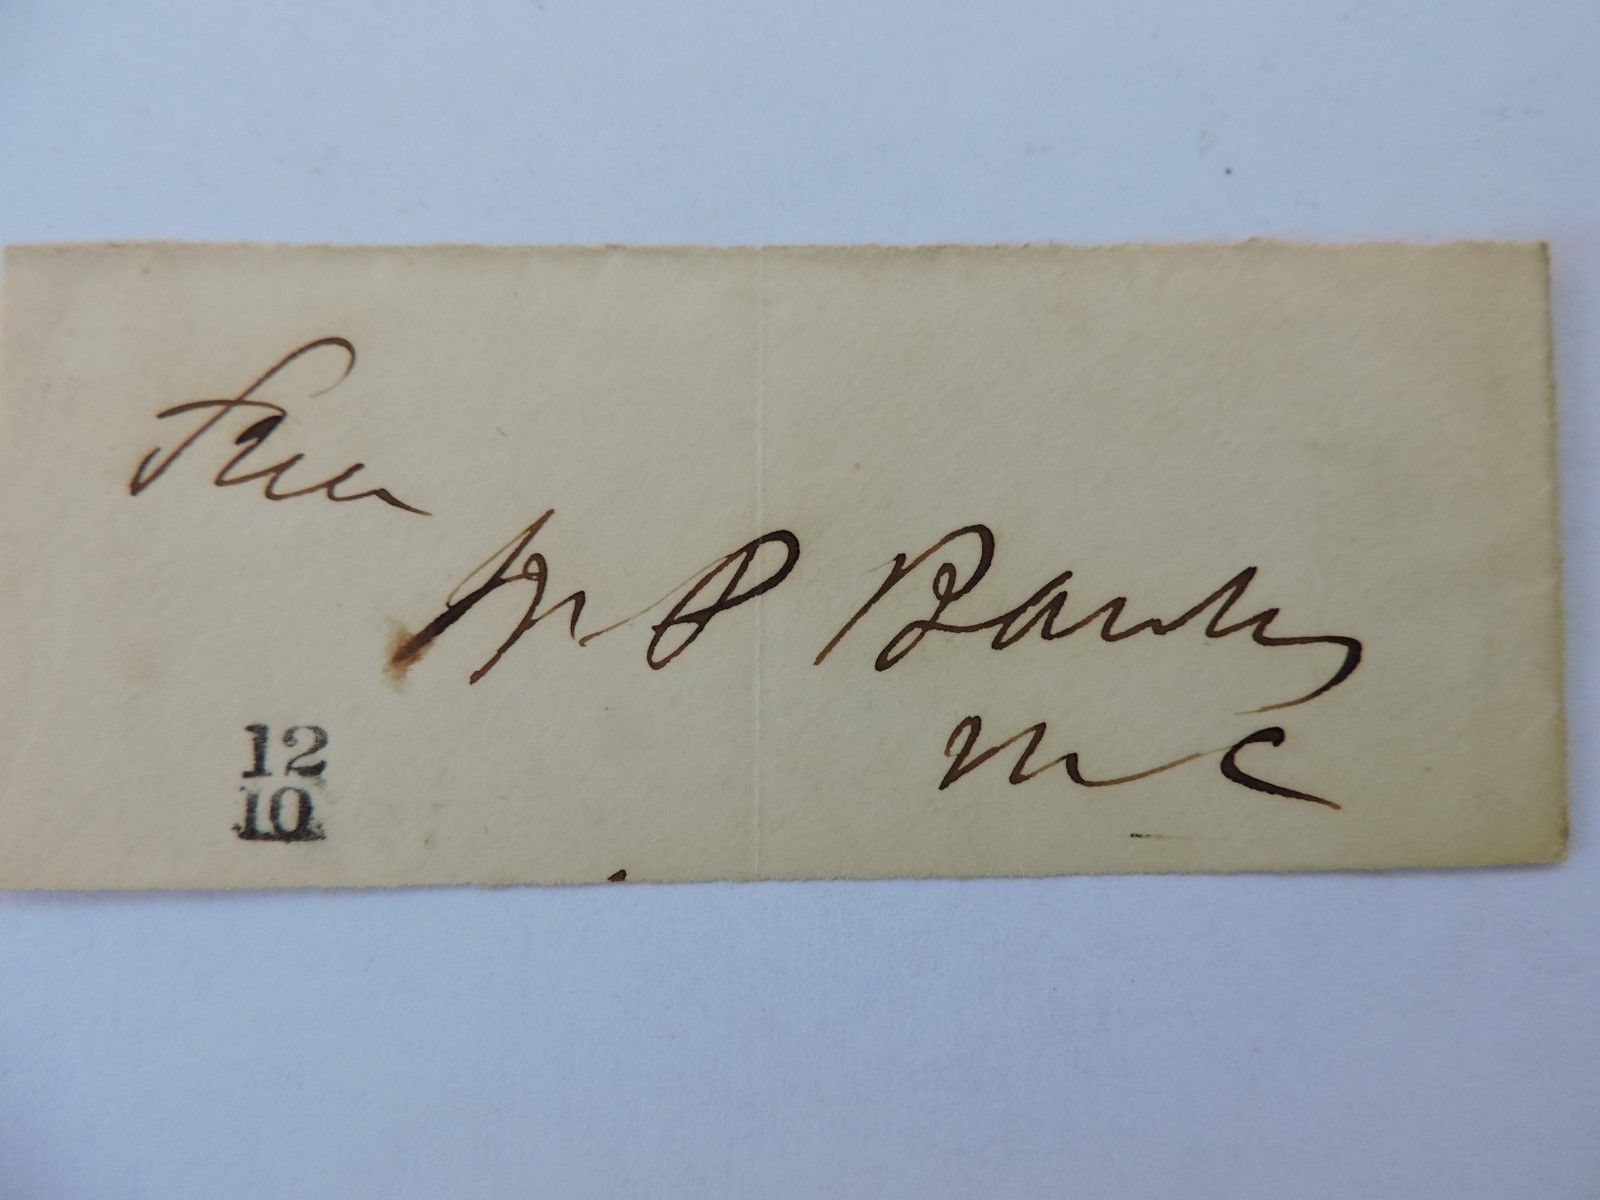 Free
N P Banks
M C
12
10